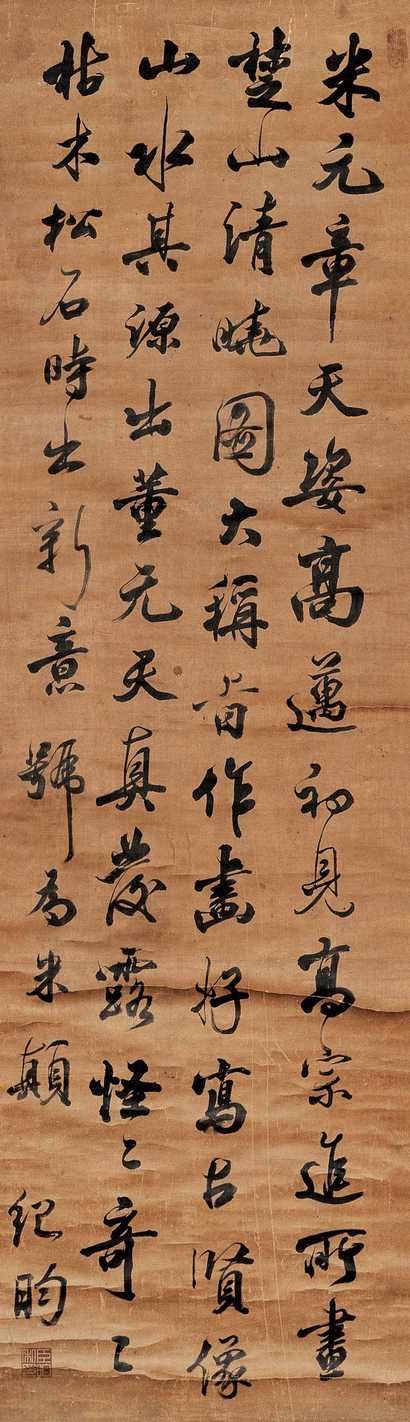 米元章天姿高邁初見高宗進所畫
楚山清曉圖大稱旨作畫好寫古賢像
山水其源出董元天真發露怪〻奇〻
枯木松石時出新意號為米顛
紀昀